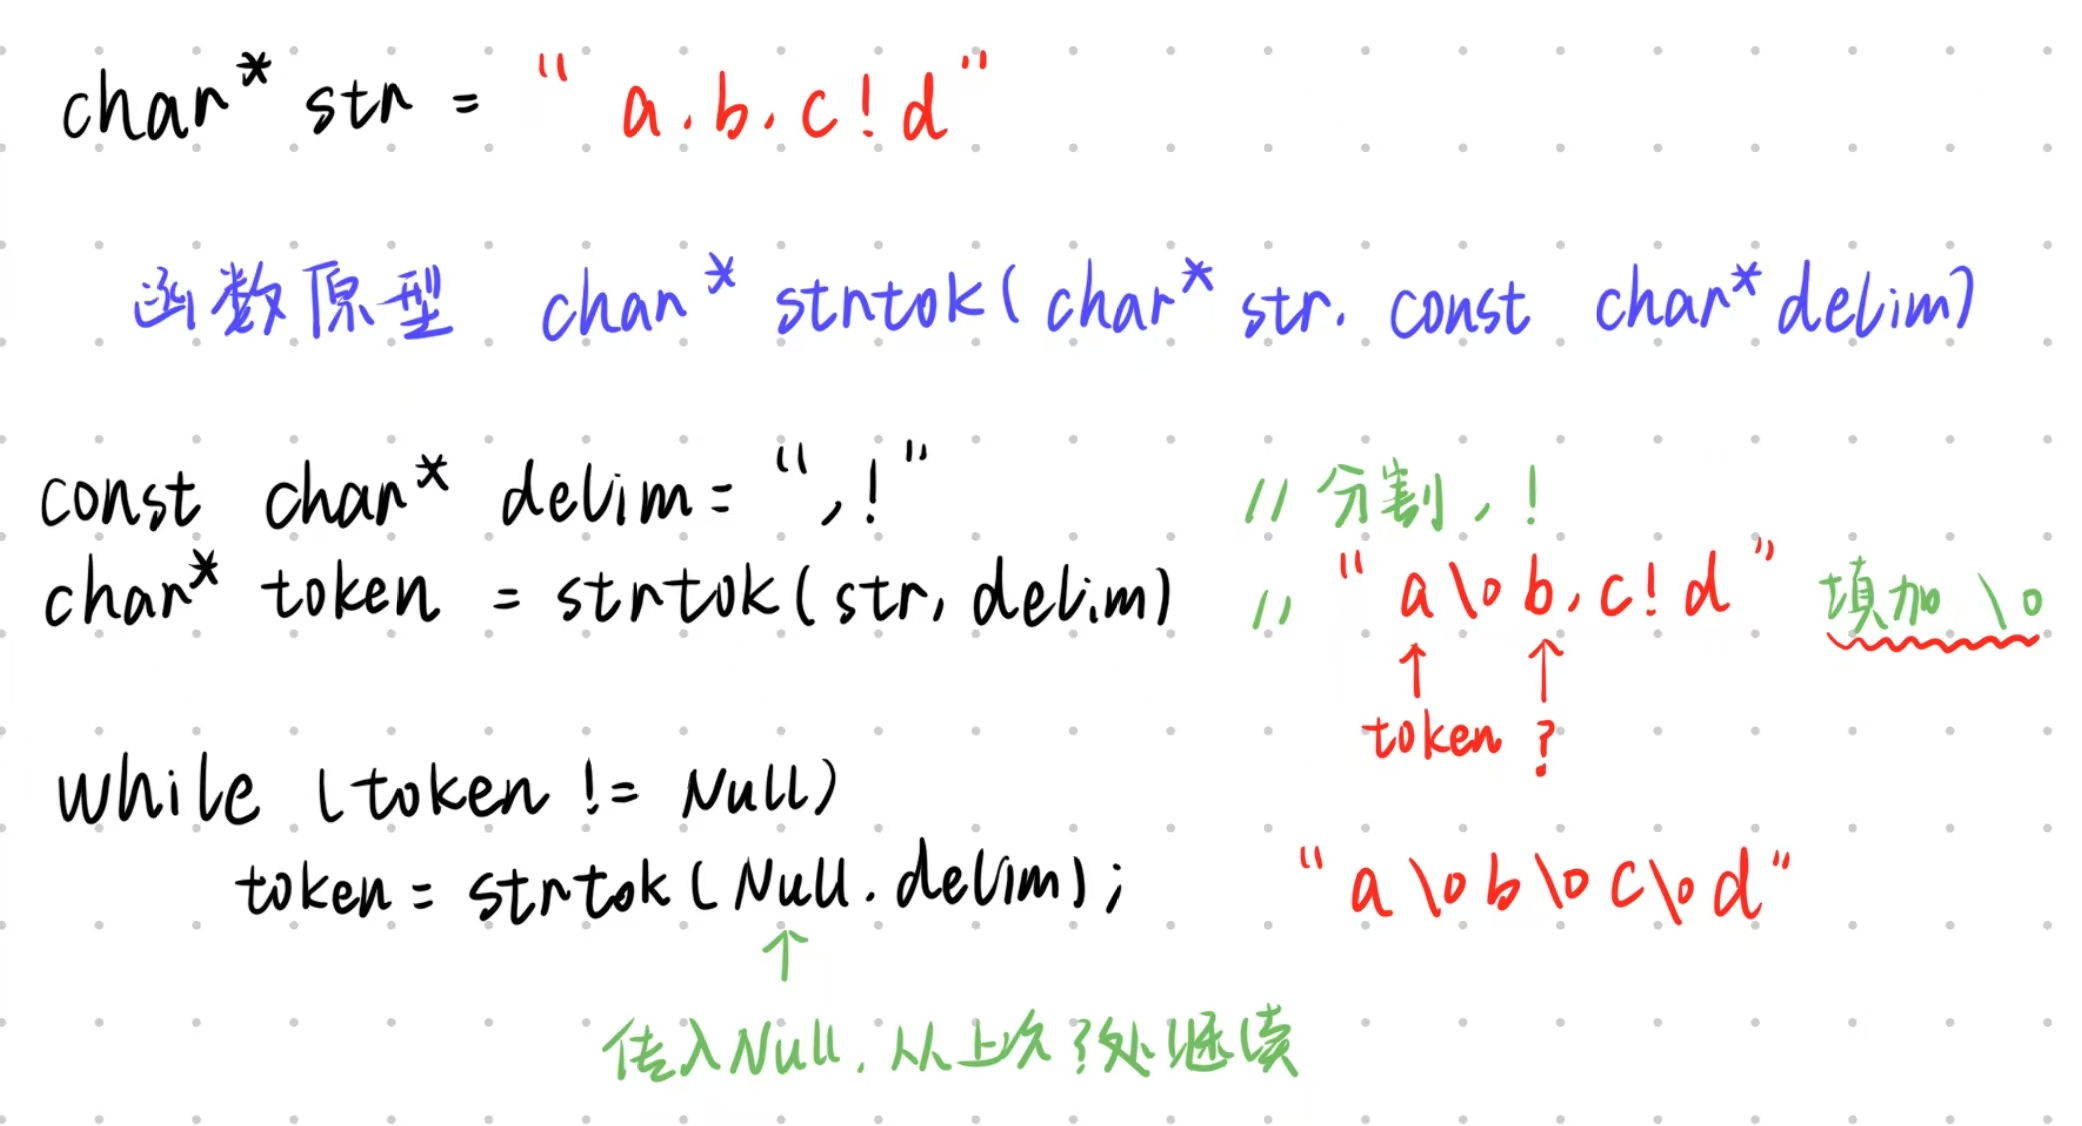 char* str = " a,b,c!d"
函数原型 char* strtok(char* str, const char* delim)
const char* delim= ",!" // 分割,!
char* token = strtok(str, delim) // "a\0b,c!d" 填加 \0
↑ ↑
token ?
while (token != Null)
token = strtok(Null, delim); "a\0b\0c\0d"
↑
传入Null,从上次?处继续